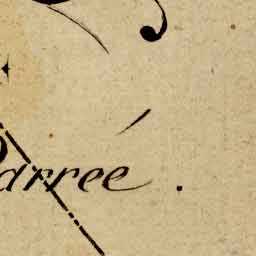 arreé.